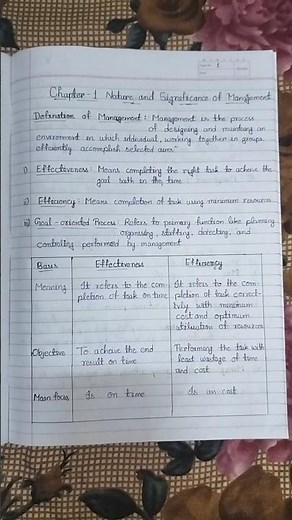 Chapter-1 Nature and Significance of Management
Defination of Management: Management is the process
of designing and maintaing an
environment in which individual, working together in groups
efficiently accomplish selected aims"
i) Effectiveness: Means completing the right task to achieve the
goal with in the time
ii) Efficiency: Means completion of task using minimum resources
iii) Goal-oriented Process: Refers to primary function like planning
organising, staffing, directing, and
controlling performed by management
Basis Effectiveness Efficiency
Meaning It refers to the com- It refers to the com-
pletion of task on time pletion of task correct-
ly with minimum
cost and optimum
utilisation of resources
Objective To achieve the end Performing the task with
result on time least wastage of time
and cost
Main focus Is on time Is on cost